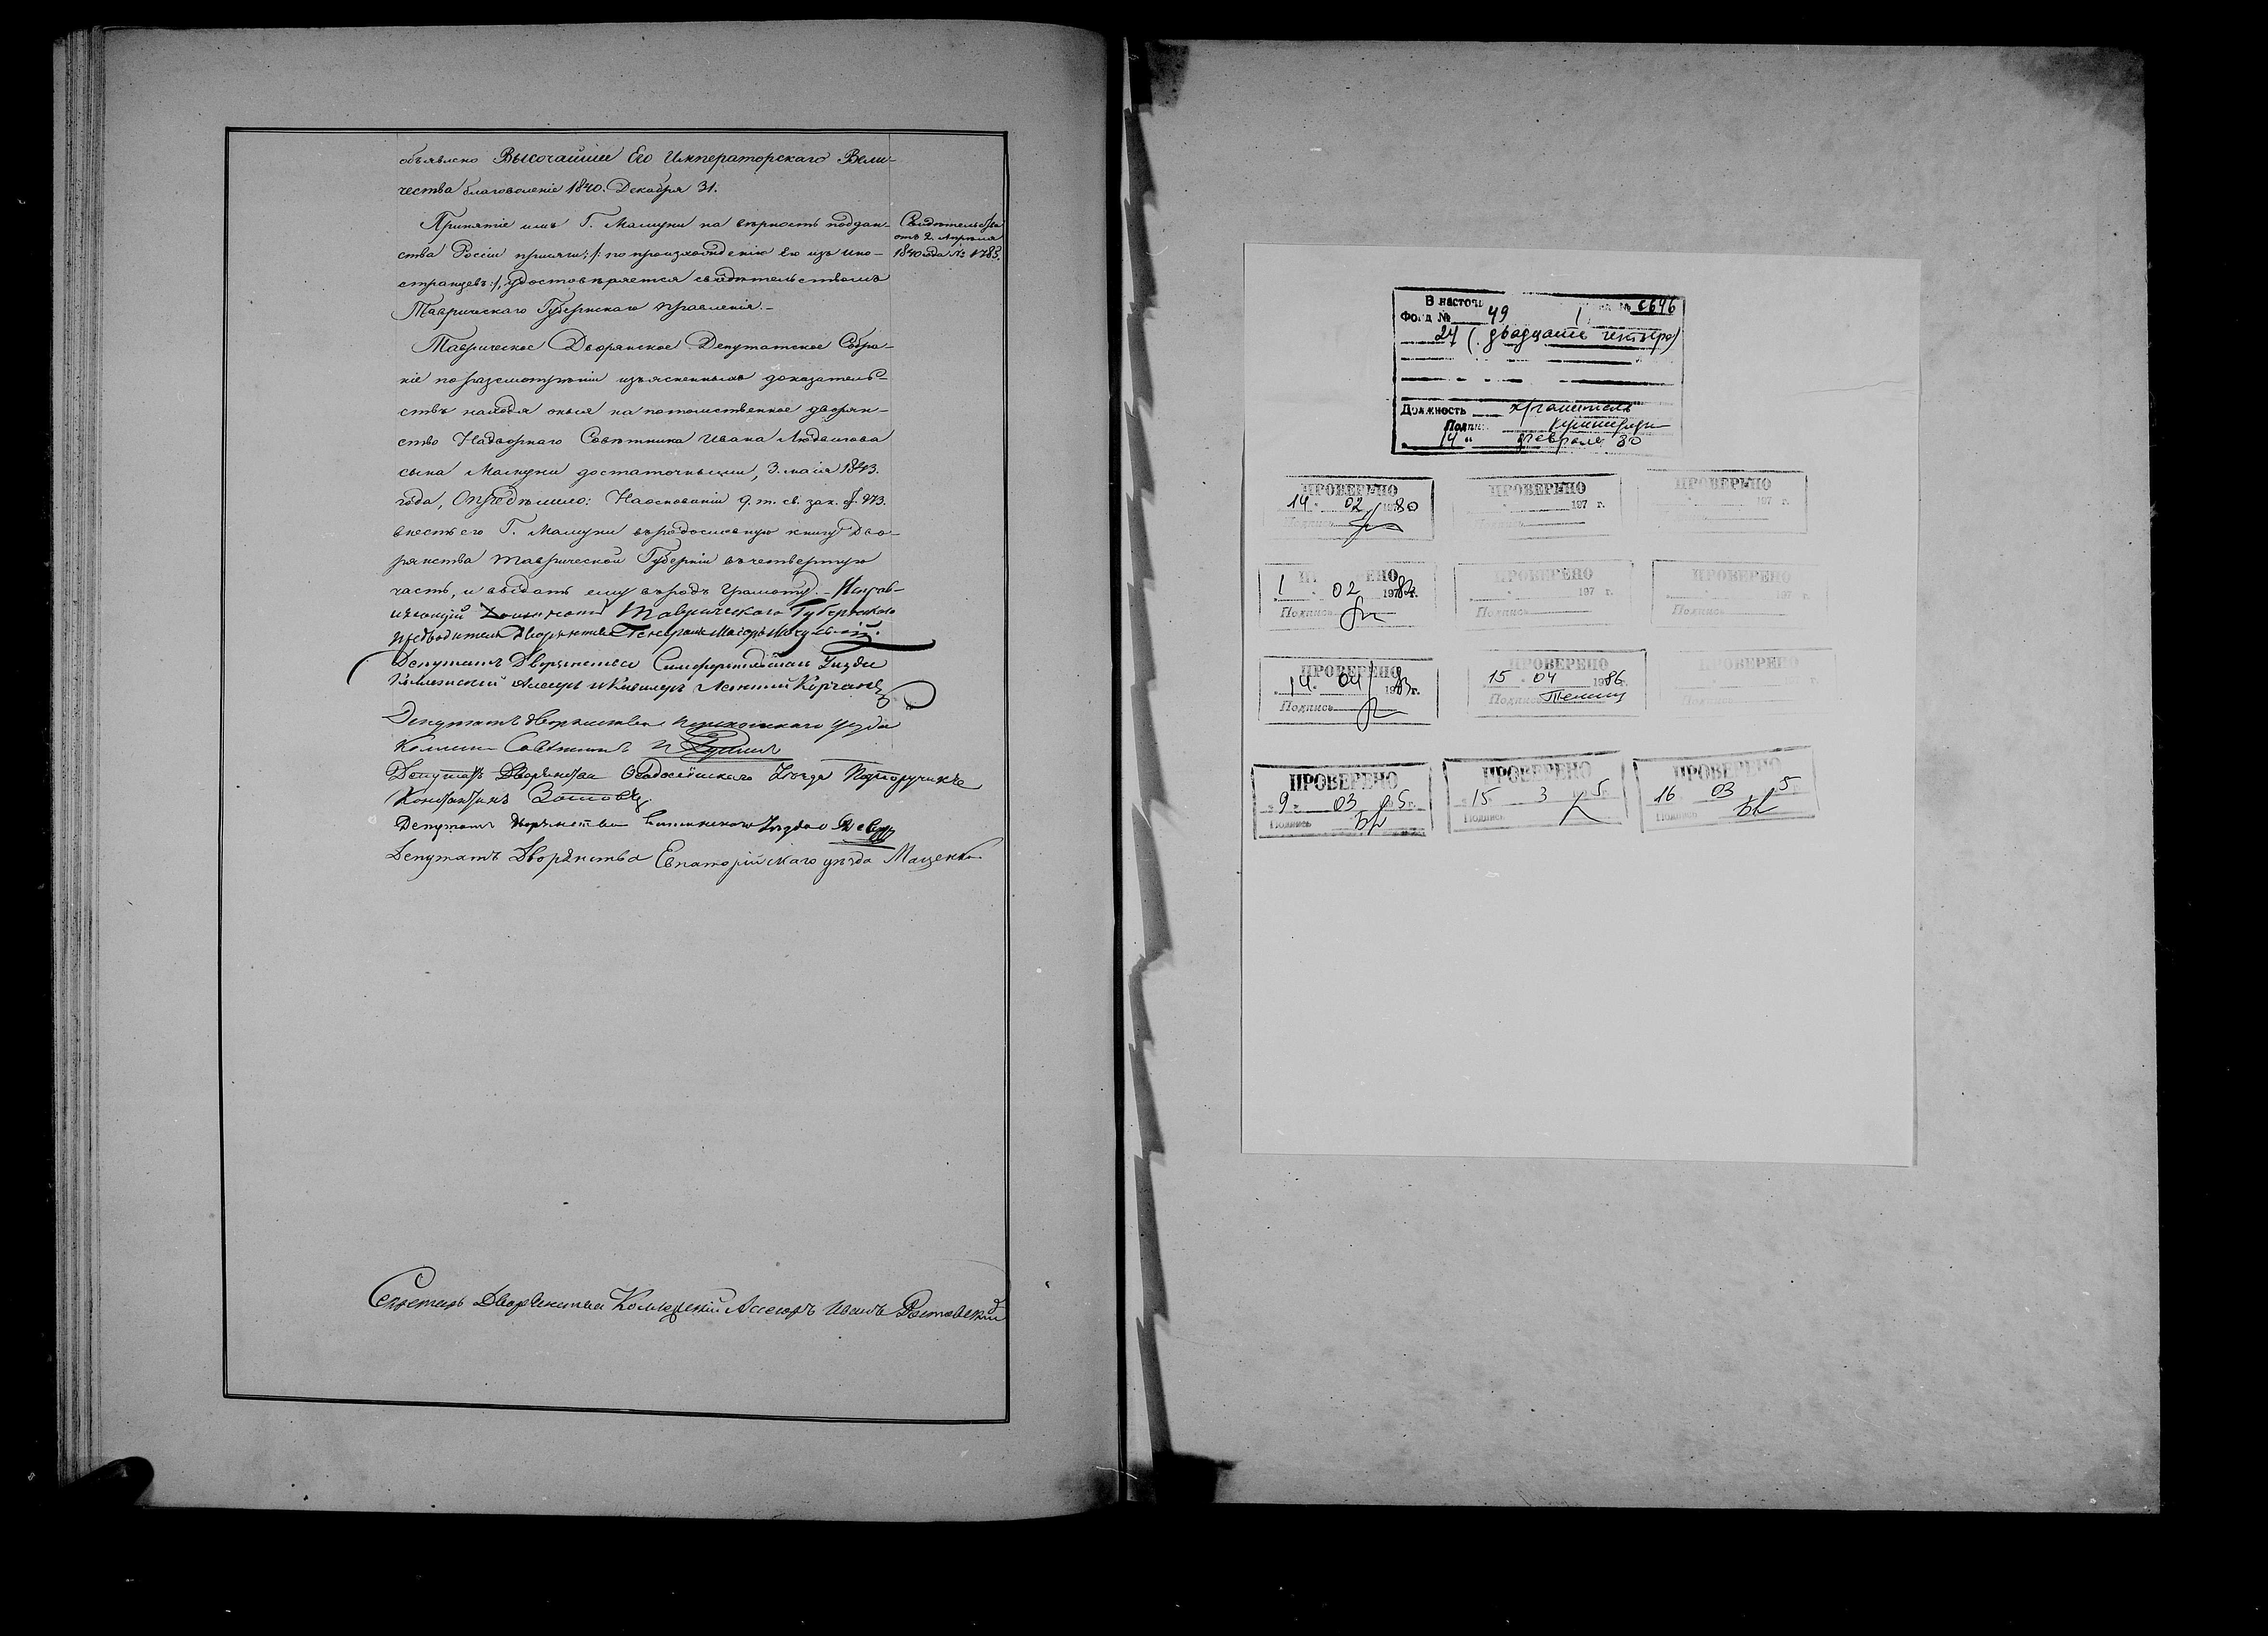 объявлено Высочайшее Его Императорскаго Вели-
чества благоволеніе 1840. Декабря 31.
Принятіе имъ Г. Мащуни на вѣрность поддан-
ства Россіи присяги, /: по произхожденію Его изъ ино-
странцевъ :/, удостовѣряется свидѣтельствомъ
Таврическаго Губернскаго Правленія. –
Свидѣтельство
отъ 2. Апрѣля
1840 года № 1785.
Таврическое Дворянское Депутатское Собра-
ніе по разсмотрѣніи изъясненныхъ доказатель-
ствъ находя оныя на потомственное дворян-
ство Надворнаго Совѣтника Ивана Людвигова
сына Мащуни достаточными, 3. маія 1843.
года, Опредѣлило: На основаніи 9. т. св. зак.
внесть его Г. Мащуни въ родословную книгу Дво-
рянства Таврической Губерніи въ четвертую
часть, и выдать ему въ родъ грамоту. – Исправ-
ляющій должность Таврическаго Губернскаго
Предводителя Дворянства Генералъ Маіоръ
Депутатъ Дворянства Симферопольскаго Уѣзда
Коллежскій Асесоръ и Кавалеръ
Депутатъ дворянства Перекопскаго уѣзда
Совѣтникъ
Депутатъ Дворянства Ѳеодосійскаго уѣзда Подпоручикъ
Константинъ
Депутатъ Дворянства уѣзда
Депутатъ Дворянства Евпаторійскаго уѣзда Маценко
Секретарь Дворянства Коллежскій Асесоръ Иванъ
В настоящ
Фонд № 49 1 № 6646
24 (двадцать четыре)
Должность хранитель
Подпи
14 " февраля 80
ПРОВЕРЕНО ПРОВЕРЕНО ПРОВЕРЕНО
14 . 02 1980 197 г. 197 г.
Подпись
П ЕНО ПРОВЕРЕНО ПРОВЕРЕНО
1 . 02 197 г. 197 г.
Подпись Подпись
ПРОВЕРЕНО ПРОВЕРЕНО ПРОВЕРЕНО
14. 04 198 г. 15 . 04 1986г.
Подпись Подпись
ПРОВЕРЕНО ПРОВЕРЕНО ПРОВЕРЕНО
9 03 05г. 15 3 5 16 03 5
Подпись Подпись Подпись